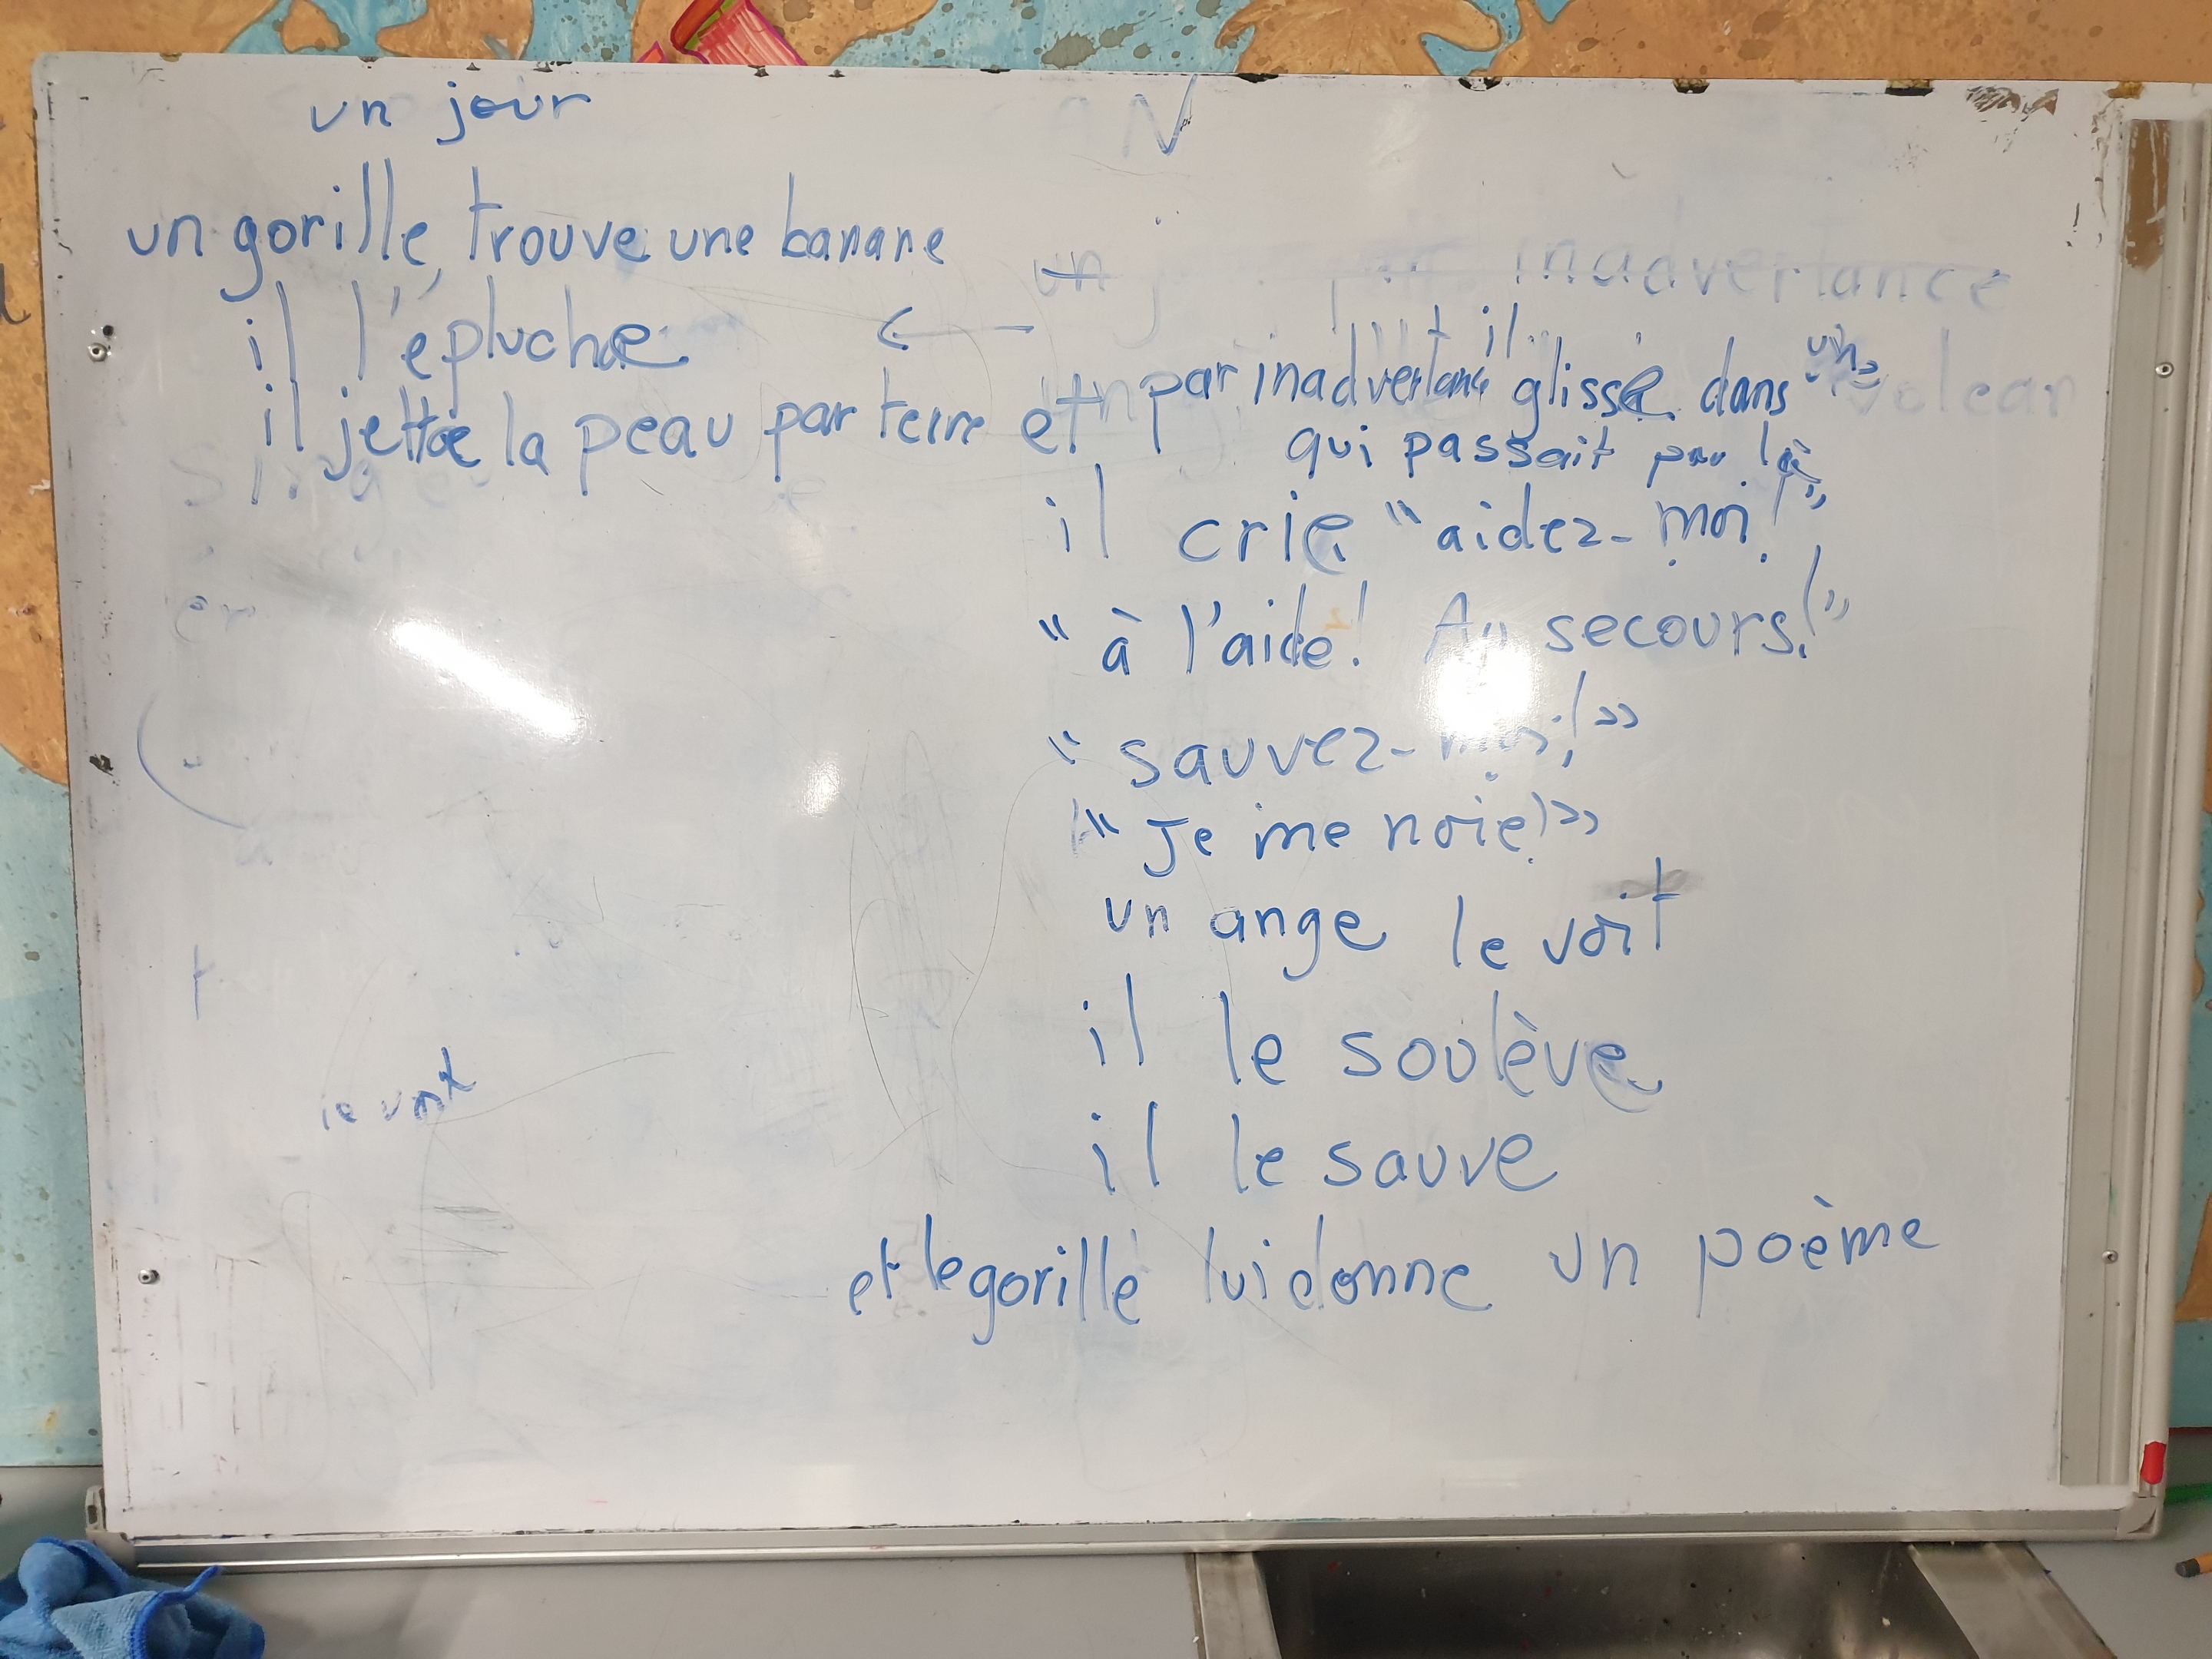 un jour
N
un gorille trouve une banane
inadvertance
il l'épluche
il jette la peau par terre et par inadvertance il glisse dans un volcan
qui passait par là
il crie "aidez-moi!"
"à l'aide! Au secours!"
"sauvez-moi!"
"Je me noie!"
un ange le voit
il le soulève
le voit
il le sauve
et le gorille lui donne un poème